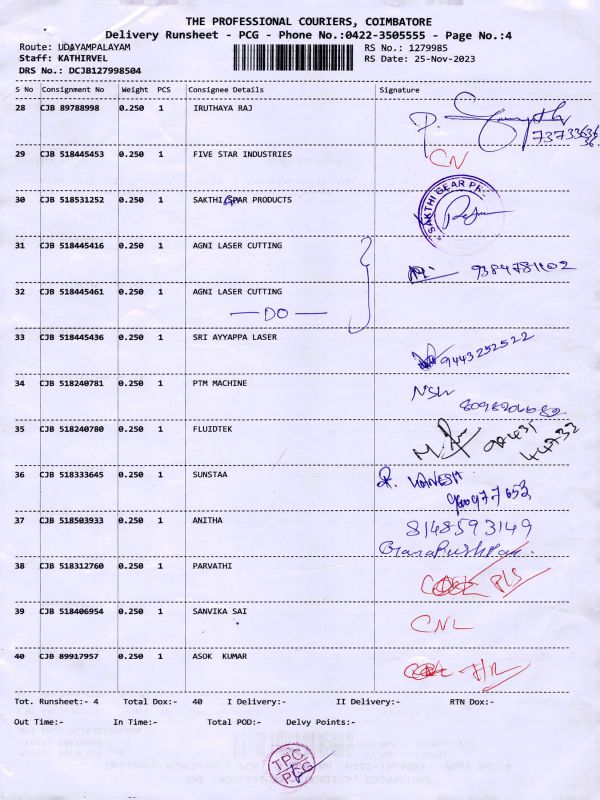 THE PROFESSIONAL COURIERS, COIMBATORE
Delivery Runsheet - PCG - Phone No.:0422-3505555 - Page No.:4
Route: UDAYAMPALAYAM RS No.: 1279985
Staff: KATHIRVEL RS Date: 25-Nov-2023
DRS No.: DCJB127998504
S No Consignment No Weight PCS Consignee Details Signature
28 CJB 89788998 0.250 1 IRUTHAYA RAJ
29 CJB 518445453 0.250 1 FIVE STAR INDUSTRIES CN
30 CJB 518531252 0.250 1 SAKTHI GEAR PRODUCTS
SAKTHI GEAR PR
31 CJB 518445416 0.250 1 AGNI LASER CUTTING
9384781102
32 CJB 518445461 0.250 1 AGNI LASER CUTTING
— DO —
33 CJB 518445436 0.250 1 SRI AYYAPPA LASER
9443252522
34 CJB 518240781 0.250 1 PTM MACHINE
35 CJB 518240780 0.250 1 FLUIDTEK
44732
36 CJB 518333645 0.250 1 SUNSTAA
37 CJB 518503933 0.250 1 ANITHA 8148593149
38 CJB 518312760 0.250 1 PARVATHI
39 CJB 518406954 0.250 1 SANVIKA SAI CNL
40 CJB 89917957 0.250 1 ASOK KUMAR
Tot. Runsheet:- 4 Total Dox:- 40 I Delivery:- II Delivery:- RTN Dox:-
Out Time:- In Time:- Total POD:- Delvy Points:-
TPC
PCG